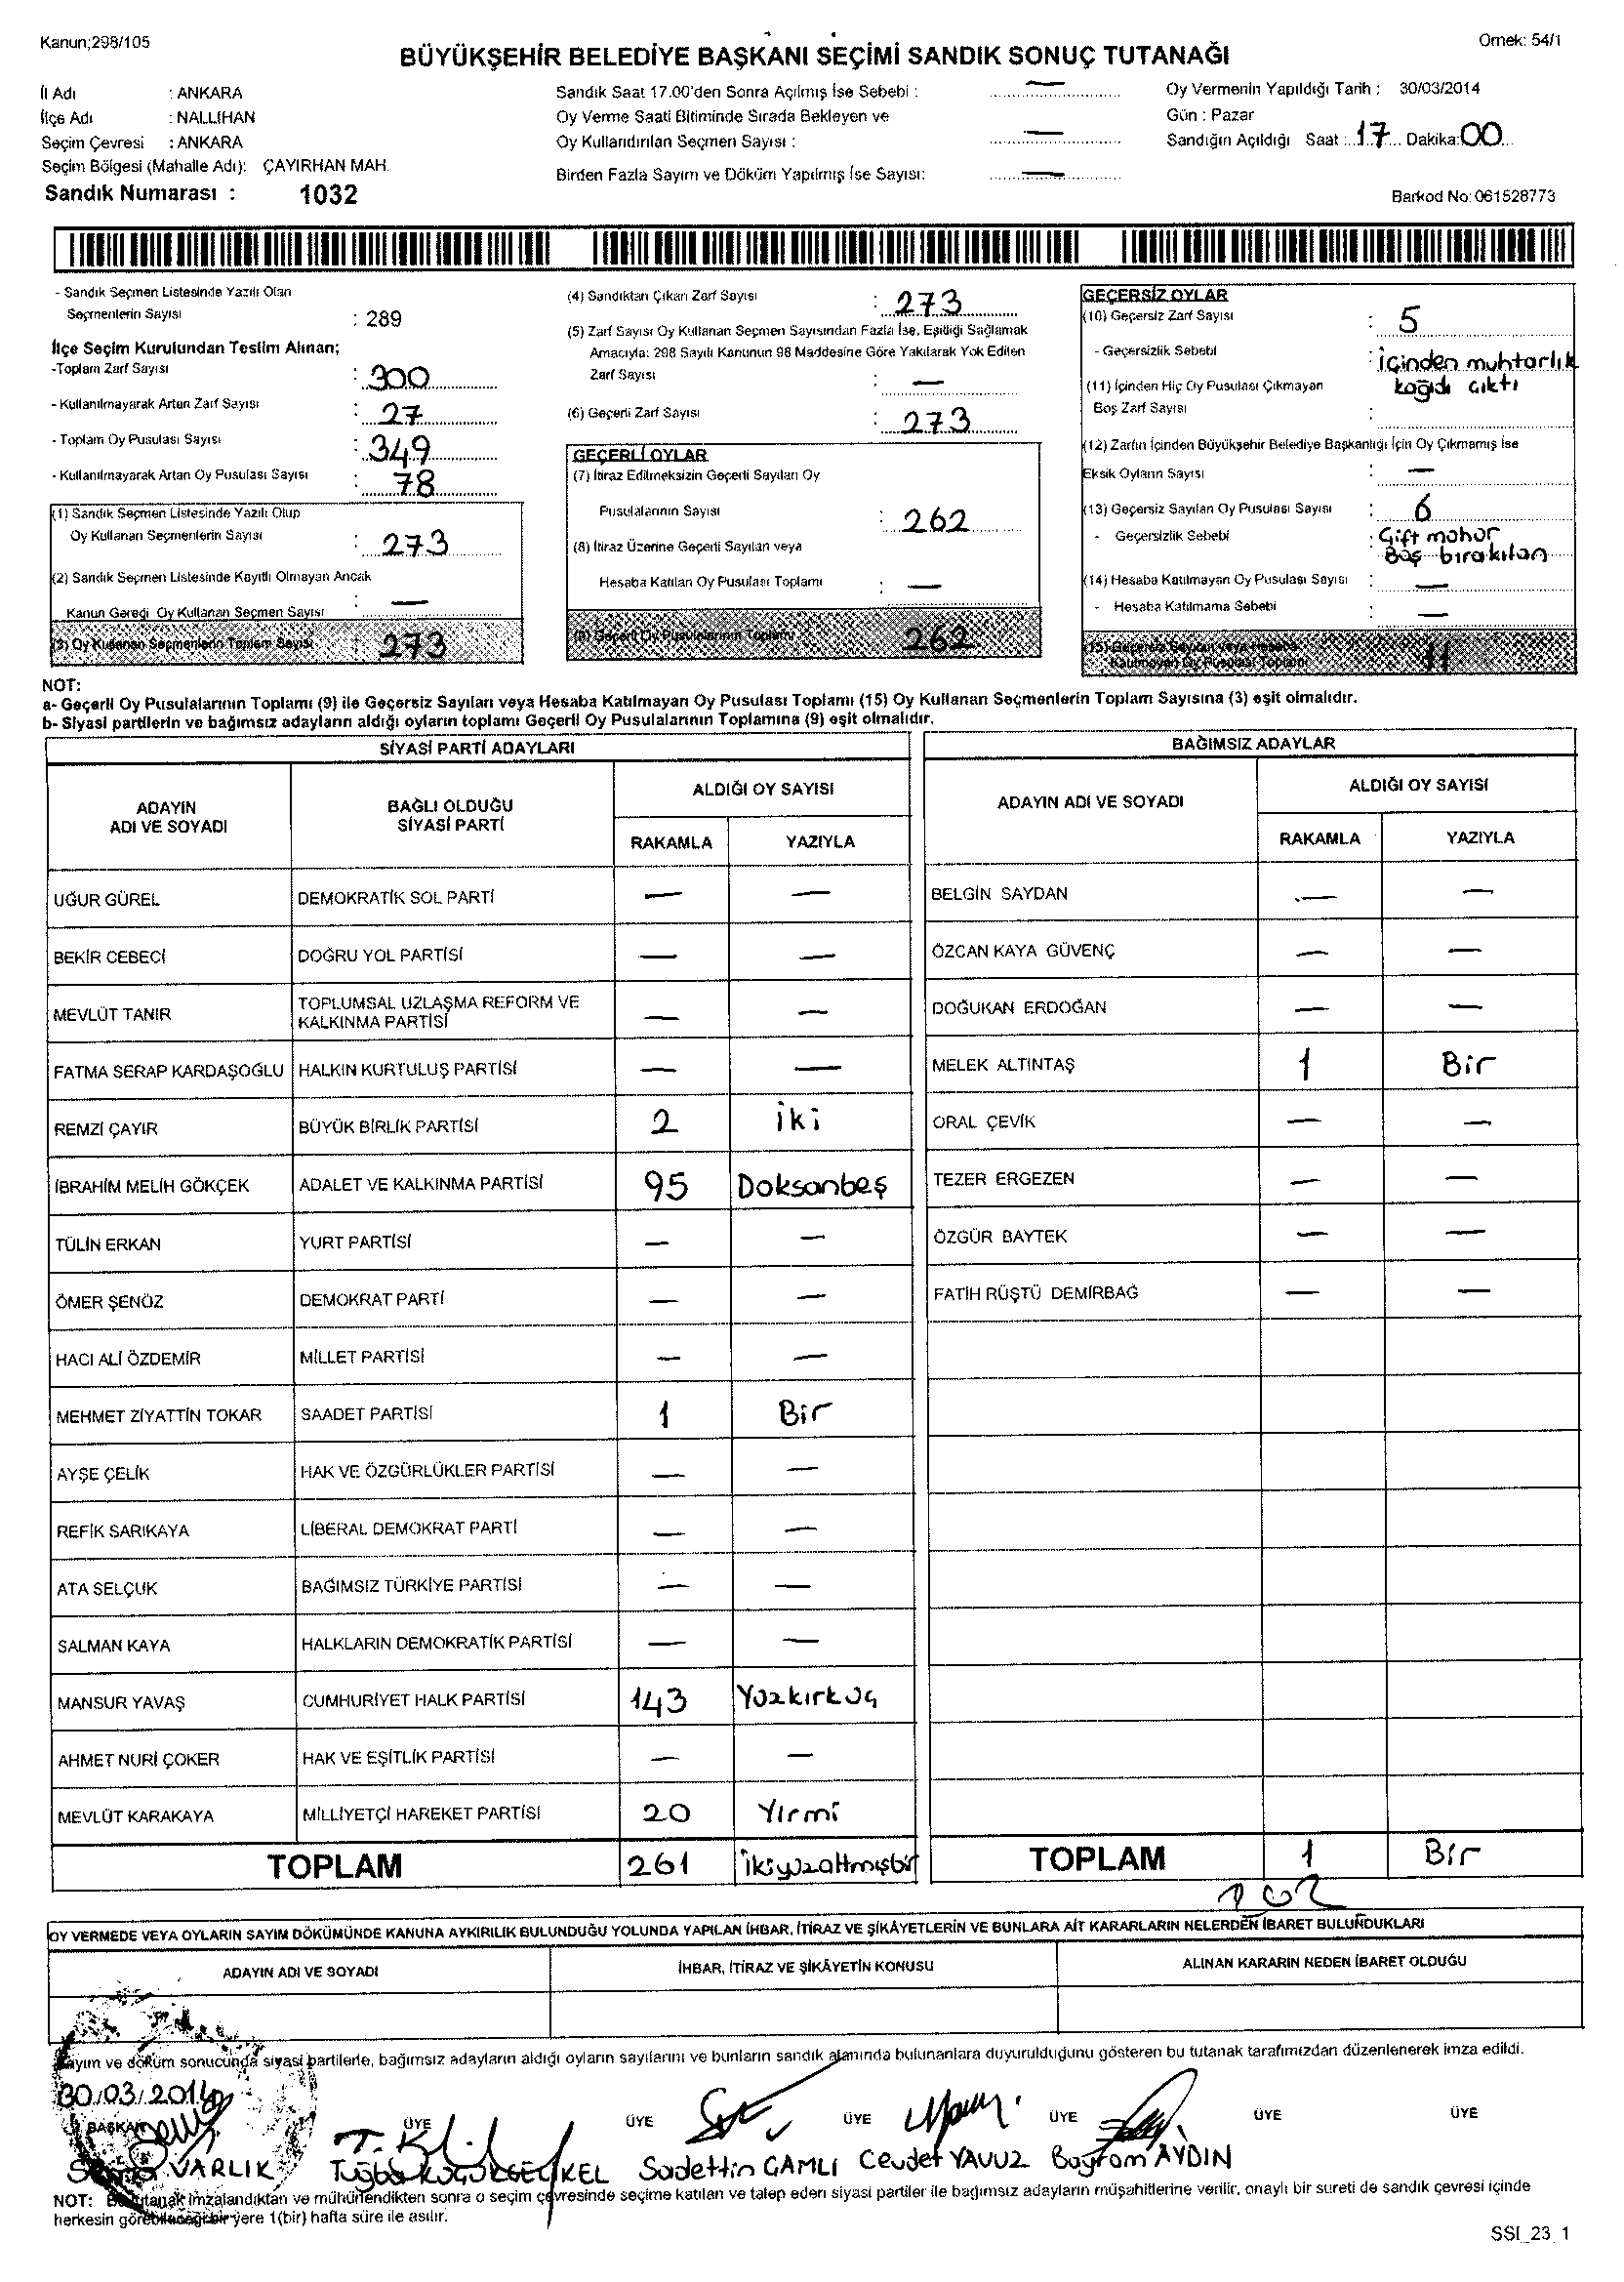 Kanun;298/105
Örnek: 54/1
BÜYÜKŞEHİR BELEDİYE BAŞKANI SEÇİMİ SANDIK SONUÇ TUTANAĞI
İl Adı : ANKARA
İlçe Adı : NALLIHAN
Seçim Çevresi : ANKARA
Seçim Bölgesi (Mahalle Adı): ÇAYIRHAN MAH.
Sandık Numarası : 1032
Sandık Saat 17.00'den Sonra Açılmış İse Sebebi : —
Oy Verme Saati Bitiminde Sırada Bekleyen ve
Oy Kullandırılan Seçmen Sayısı : —
Birden Fazla Sayım ve Döküm Yapılmış İse Sayısı: —
Oy Vermenin Yapıldığı Tarih : 30/03/2014
Gün : Pazar
Sandığın Açıldığı Saat : 17 Dakika: 00
Barkod No: 061528773
- Sandık Seçmen Listesinde Yazılı Olan
Seçmenlerin Sayısı : 289
İlçe Seçim Kurulundan Teslim Alınan;
-Toplam Zarf Sayısı : 300
- Kullanılmayarak Artan Zarf Sayısı : 27
- Toplam Oy Pusulası Sayısı : 349
- Kullanılmayarak Artan Oy Pusulası Sayısı : 78
(1) Sandık Seçmen Listesinde Yazılı Olup
Oy Kullanan Seçmenlerin Sayısı : 273
(2) Sandık Seçmen Listesinde Kayıtlı Olmayan Ancak
Kanun Gereği Oy Kullanan Seçmen Sayısı : —
(3) Oy Kullanan Seçmenlerin Toplam Sayısı : 273
(4) Sandıktan Çıkan Zarf Sayısı : 273
(5) Zarf Sayısı Oy Kullanan Seçmen Sayısından Fazla İse, Eşitliği Sağlamak
Amacıyla: 298 Sayılı Kanunun 98 Maddesine Göre Yakılarak Yok Edilen
Zarf Sayısı : —
(6) Geçerli Zarf Sayısı : 273
GEÇERLİ OYLAR
(7) İtiraz Edilmeksizin Geçerli Sayılan Oy
Pusulalarının Sayısı : 262
(8) İtiraz Üzerine Geçerli Sayılan veya
Hesaba Katılan Oy Pusulası Toplamı : —
(9) Geçerli Oy Pusulalarının Toplamı : 262
GEÇERSİZ OYLAR
(10) Geçersiz Zarf Sayısı : 5
- Geçersizlik Sebebi : içinden muhtarlık
kağıdı çıktı
(11) İçinden Hiç Oy Pusulası Çıkmayan
Boş Zarf Sayısı :
(12) Zarfın İçinden Büyükşehir Belediye Başkanlığı İçin Oy Çıkmamış İse
Eksik Oyların Sayısı : —
(13) Geçersiz Sayılan Oy Pusulası Sayısı : 6
- Geçersizlik Sebebi : Çift mühür
Boş bırakılan
(14) Hesaba Katılmayan Oy Pusulası Sayısı : —
- Hesaba Katılmama Sebebi : —
(15) Geçersiz Sayılan veya Hesaba
Katılmayan Oy Pusulası Toplamı 11
NOT:
a- Geçerli Oy Pusulalarının Toplamı (9) ile Geçersiz Sayılan veya Hesaba Katılmayan Oy Pusulası Toplamı (15) Oy Kullanan Seçmenlerin Toplam Sayısına (3) eşit olmalıdır.
b- Siyasi partilerin ve bağımsız adayların aldığı oyların toplamı Geçerli Oy Pusulalarının Toplamına (9) eşit olmalıdır.
SİYASİ PARTİ ADAYLARI
ADAYIN ADI VE SOYADI BAĞLI OLDUĞU SİYASİ PARTİ ALDIĞI OY SAYISI
RAKAMLA YAZIYLA
UĞUR GÜREL DEMOKRATİK SOL PARTİ — —
BEKİR CEBECİ DOĞRU YOL PARTİSİ — —
MEVLÜT TANIR TOPLUMSAL UZLAŞMA REFORM VE KALKINMA PARTİSİ — —
FATMA SERAP KARDAŞOĞLU HALKIN KURTULUŞ PARTİSİ — —
REMZİ ÇAYIR BÜYÜK BİRLİK PARTİSİ 2 iki
İBRAHİM MELİH GÖKÇEK ADALET VE KALKINMA PARTİSİ 95 Doksanbeş
TÜLİN ERKAN YURT PARTİSİ — —
ÖMER ŞENÖZ DEMOKRAT PARTİ — —
HACI ALİ ÖZDEMİR MİLLET PARTİSİ — —
MEHMET ZİYATTİN TOKAR SAADET PARTİSİ 1 Bir
AYŞE ÇELİK HAK VE ÖZGÜRLÜKLER PARTİSİ — —
REFİK SARIKAYA LİBERAL DEMOKRAT PARTİ — —
ATA SELÇUK BAĞIMSIZ TÜRKİYE PARTİSİ — —
SALMAN KAYA HALKLARIN DEMOKRATİK PARTİSİ — —
MANSUR YAVAŞ CUMHURİYET HALK PARTİSİ 143 Yüzkırküç
AHMET NURİ ÇOKER HAK VE EŞİTLİK PARTİSİ — —
MEVLÜT KARAKAYA MİLLİYETÇİ HAREKET PARTİSİ 20 Yirmi
TOPLAM 261 ikiyüzaltmışbir
BAĞIMSIZ ADAYLAR
ADAYIN ADI VE SOYADI ALDIĞI OY SAYISI
RAKAMLA YAZIYLA
BELGİN SAYDAN — —
ÖZCAN KAYA GÜVENÇ — —
DOĞUKAN ERDOĞAN — —
MELEK ALTINTAŞ 1 Bir
ORAL ÇEVİK — —
TEZER ERGEZEN — —
ÖZGÜR BAYTEK — —
FATİH RÜŞTÜ DEMİRBAĞ — —
TOPLAM 1 Bir
OY VERMEDE VEYA OYLARIN SAYIM DÖKÜMÜNDE KANUNA AYKIRILIK BULUNDUĞU YOLUNDA YAPILAN İHBAR, İTİRAZ VE ŞİKÂYETLERİN VE BUNLARA AİT KARARLARIN NELERDEN İBARET BULUNDUKLARI
ADAYIN ADI VE SOYADI İHBAR, İTİRAZ VE ŞİKÂYETİN KONUSU ALINAN KARARIN NEDEN İBARET OLDUĞU
Sayım ve döküm sonucunda siyasi partilerle, bağımsız adayların aldığı oyların sayılarını ve bunların sandık alanında bulunanlara duyurulduğunu gösteren bu tutanak tarafımızdan düzenlenerek imza edildi.
30/03/2014
BAŞKAN ÜYE ÜYE ÜYE ÜYE ÜYE ÜYE
VARLIK Tuğba KÜÇÜKGEÇKEL Sadettin ÇAMLI Cevdet YAVUZ Bayram AYDIN
NOT: Bu tutanak imzalandıktan ve mühürlendikten sonra o seçim çevresinde seçime katılan ve talep eden siyasi partiler ile bağımsız adayların müşahitlerine verilir, onaylı bir sureti de sandık çevresi içinde
herkesin görebileceği bir yere 1(bir) hafta süre ile asılır.
SSI_23_1